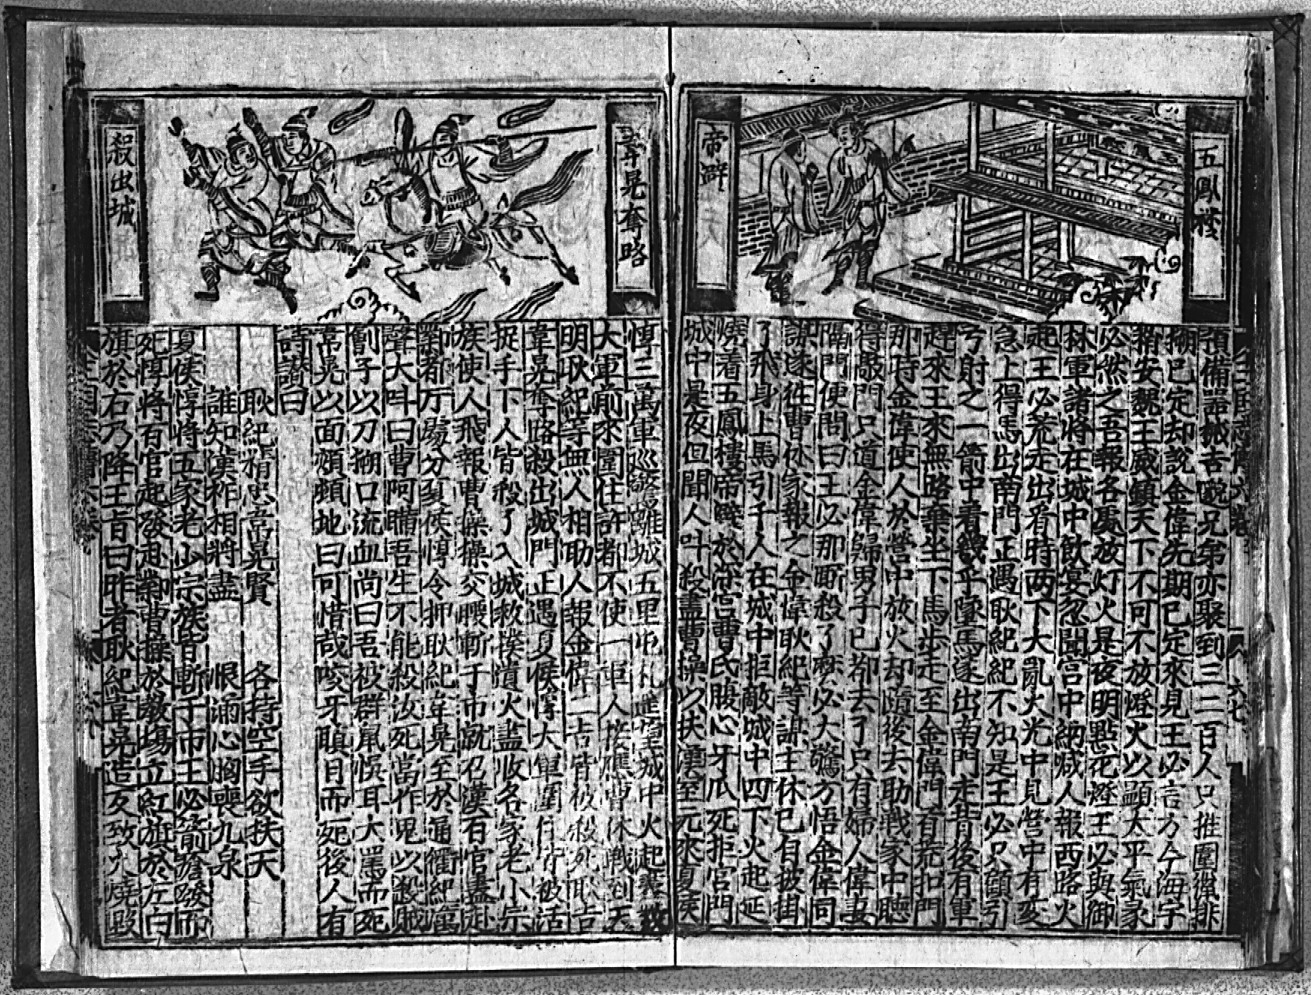 五鳳楼
帝辟
預備器械吉邈兄弟亦聚到三二百人只推圍獵排
搠已定却説金偉先期已定來見王必言方今海宇
稍安魏王威鎮天下不可不放燈火以顕太平氣象
必然之吾報各處放灯火是夜明點花燈王必與御
林軍諸將在城中飲宴忽聞宫中納喊人報西路火
起王必慌走出看時两下大亂火光中見營中有変
急上得馬出南門正遇耿紀紀不知是王必只顧引
弓射之一箭中着幾乎墜馬遂出南門走背後有軍
趕來王來無路棄坐下馬步走至金偉門首荒扣門
那時金偉使人於營中放火却隨後去助戦家中聴
得敲門只道金偉歸男子已都去了只有婦人偉妻
隔門便問曰王必那厮殺了麽必大驚方悟金偉同
謀遂往曹休家報之金偉耿紀等謀主休已自披掛
了飛身上馬引千人在城中拒敵城中四下火起延
燒着五鳳樓帝避於深宫曹氏腹心牙爪死拒宫門
城中是夜但聞人叫殺盡曹操以扶漢室元來夏侯
韋晃奪路
殺出城
惇三萬軍巡警離城五里屯札遥望城中火起
大軍前來圍住許都不使一軍人接應曹休戰到天
明耿紀等無人相助人報金偉二吉皆被殺死耿吉
韋晃奪路殺出城門正遇夏侯惇大軍圍住皆被活
捉手下人皆殺了入城救撲憤火盡收各家老小宗
族使人飛報曹操操交腰斬于市就召漢百官盡赴
鄴都厅處分夏侯惇令押耿紀韋晃至於通衢紀厲
聲大叫曰曹阿瞞吾生不能殺汝死當作鬼以殺賊
劊子以刀搠口流血尚曰吾被群鼠悞耳大罵而死
韋晃以面頰頓地曰可惜哉咬牙瞋目而死後人有
詩讃曰
耿紀精忠韋晃賢　各持空手欲扶天
誰知漢祚相將盡　恨滿心胸喪九泉
夏侯惇將五家老少宗族皆斬于市王必箭瘡發而
死惇將百官起發赴鄴曹操於教塲立紅旗於左白
旗於右乃降王旨曰昨者耿紀韋晃造反致火燒毀